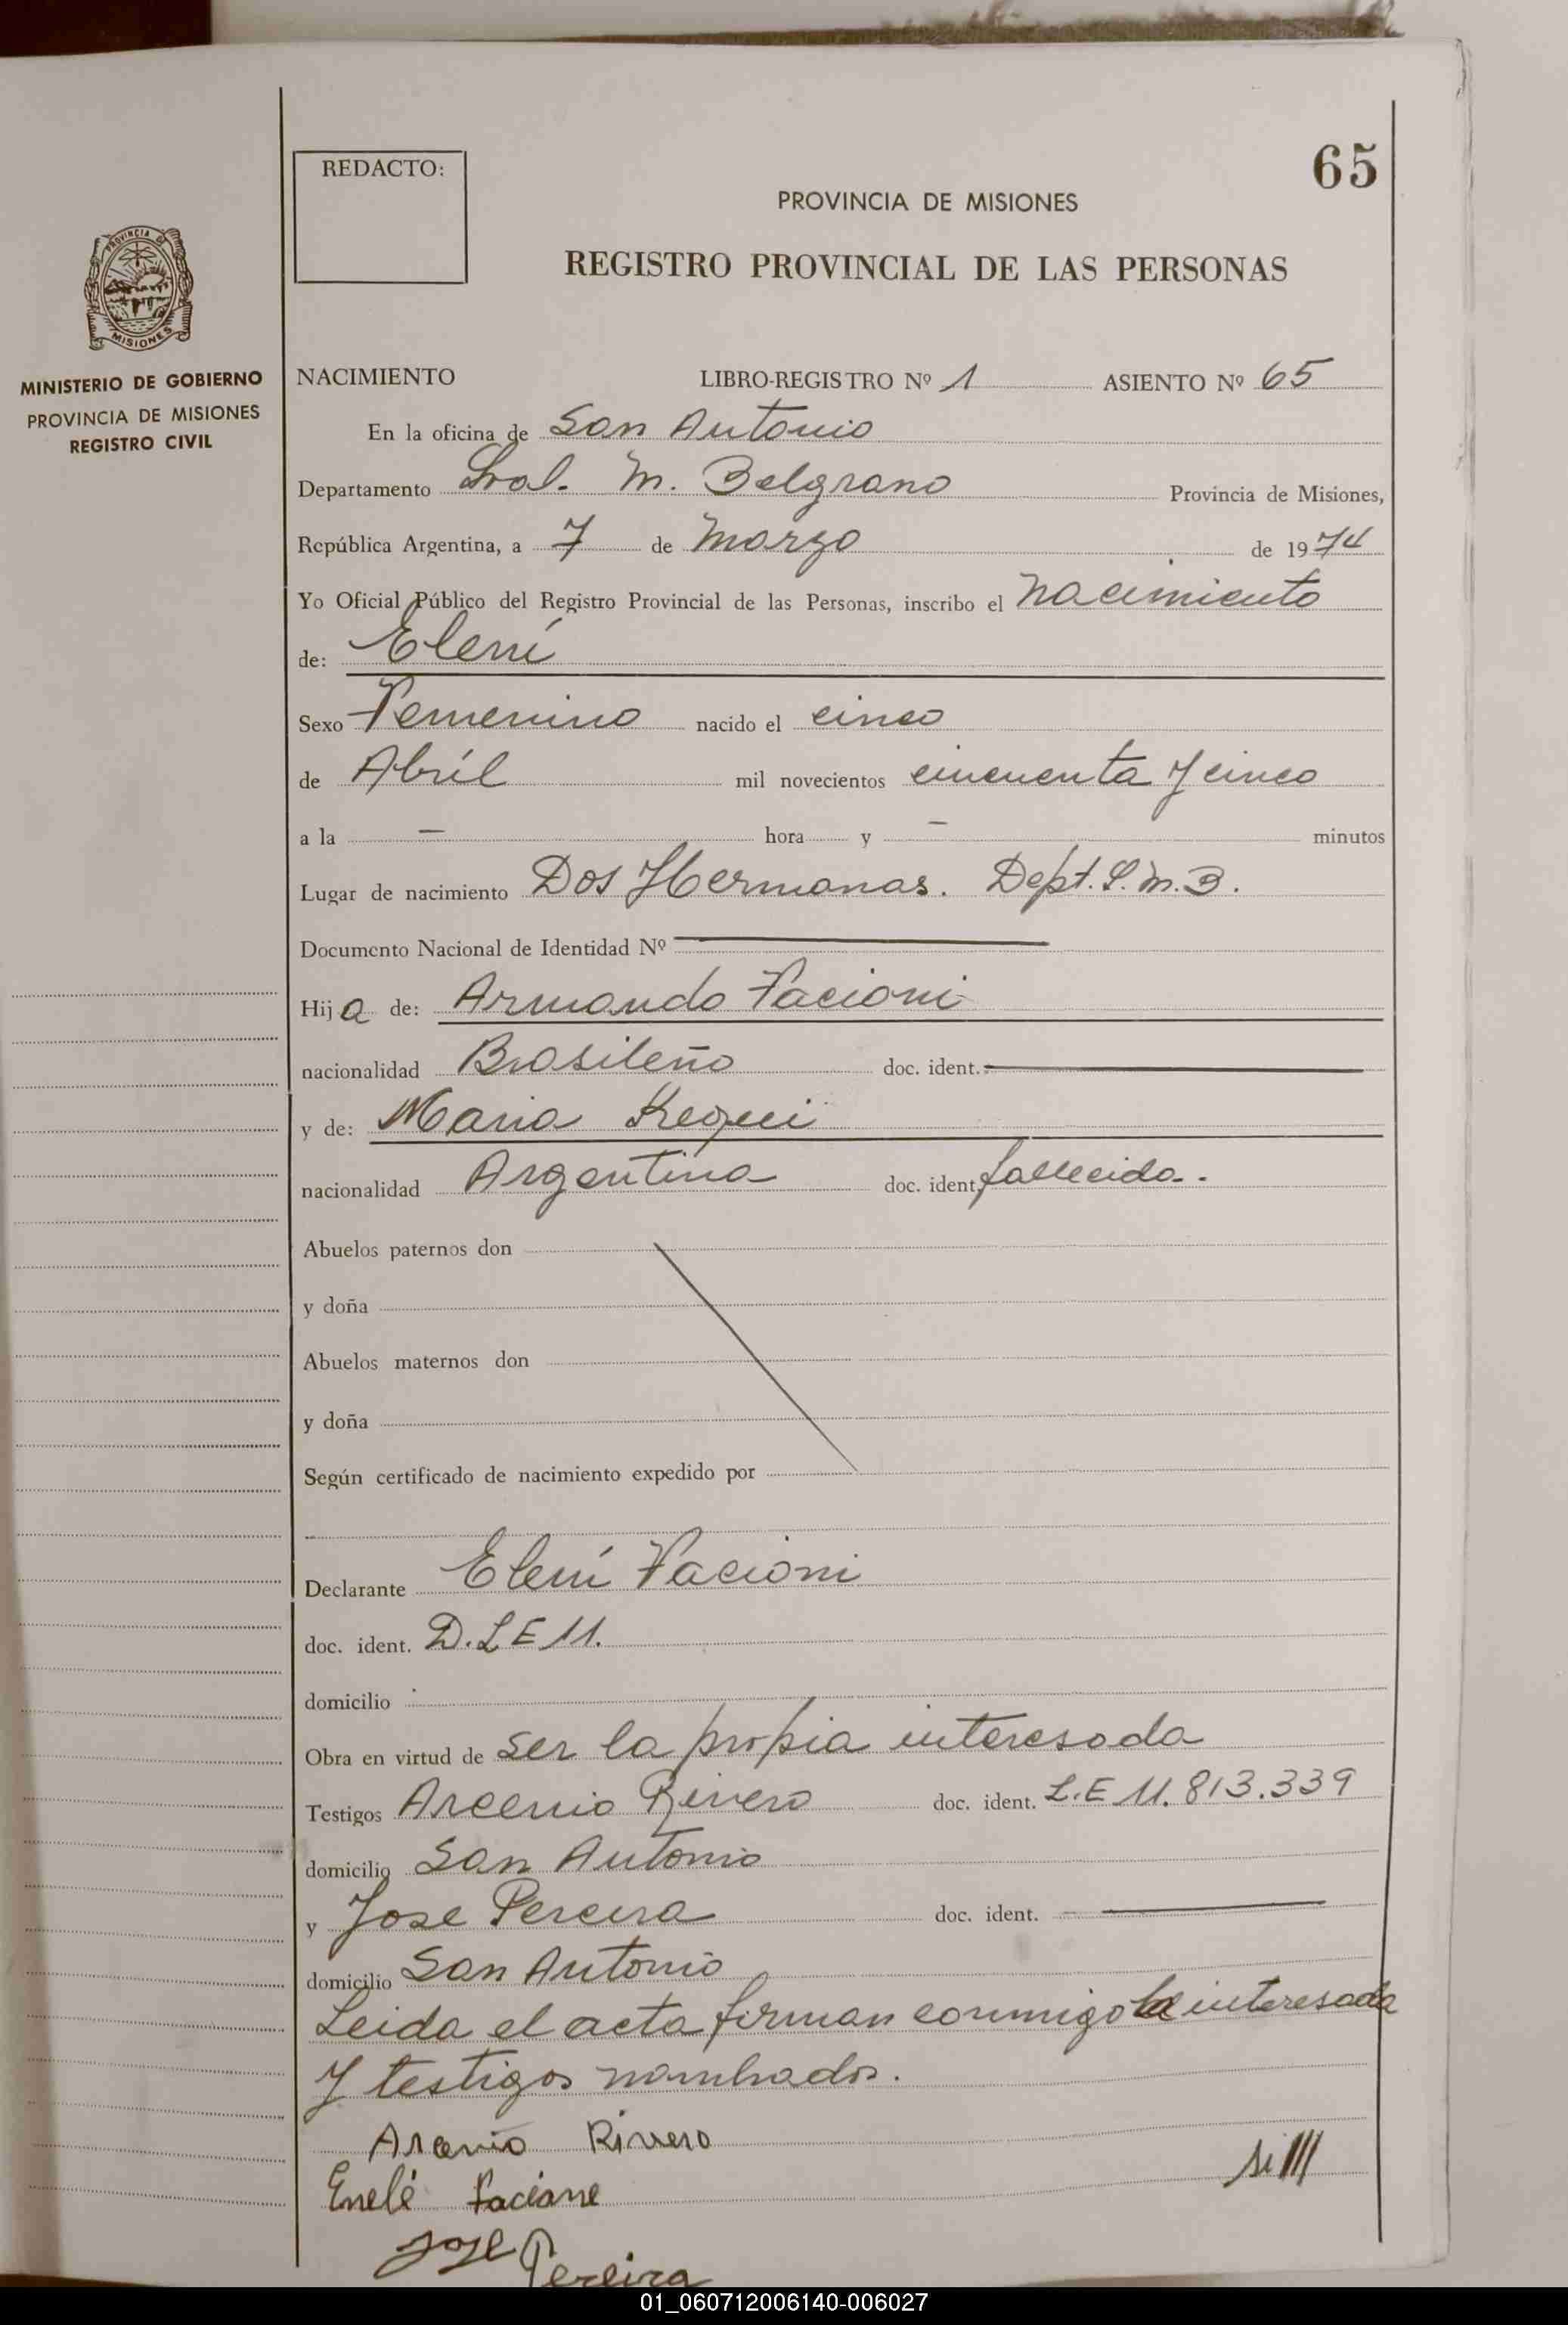 65
REDACTO:
PROVINCIA DE MISIONES
REGISTRO PROVINCIAL DE LAS PERSONAS
PROVINCIA DE
MISIONES
MINISTERIO DE GOBIERNO
PROVINCIA DE MISIONES
REGISTRO CIVIL
NACIMIENTO LIBRO-REGISTRO Nº 1 ASIENTO Nº 65
En la oficina de San Antonio
Departamento Gral. M. Belgrano Provincia de Misiones,
República Argentina, a 7 de Marzo de 1974
Yo Oficial Público del Registro Provincial de las Personas, inscribo el nacimiento
de: Elení
Sexo Femenino nacido el cinco
de Abríl mil novecientos cincuenta y cinco
a la — hora y — minutos
Lugar de nacimiento Dos Hermanas. Dept. G.M.B.
Documento Nacional de Identidad Nº
Hija de: Armando Facioni
nacionalidad Brasileño doc. ident.
y de: Maria
nacionalidad Argentina doc. ident. fallecida.
Abuelos paternos don
y doña
Abuelos maternos don
y doña
Según certificado de nacimiento expedido por
Declarante Elení Facioni
doc. ident. D.L E 11.
domicilio
Obra en virtud de ser la propia interesada
Testigos Arcenio Rivero doc. ident. L.E 11.813.339
domicilio San Antonio
y Jose Pereira doc. ident.
domicilio San Antonio
Leida el acta firman conmigo la interesada
y testigos nombrados.
Arcenio Rivero
Enelé Faciane
José Pereira
01_060712006140-006027